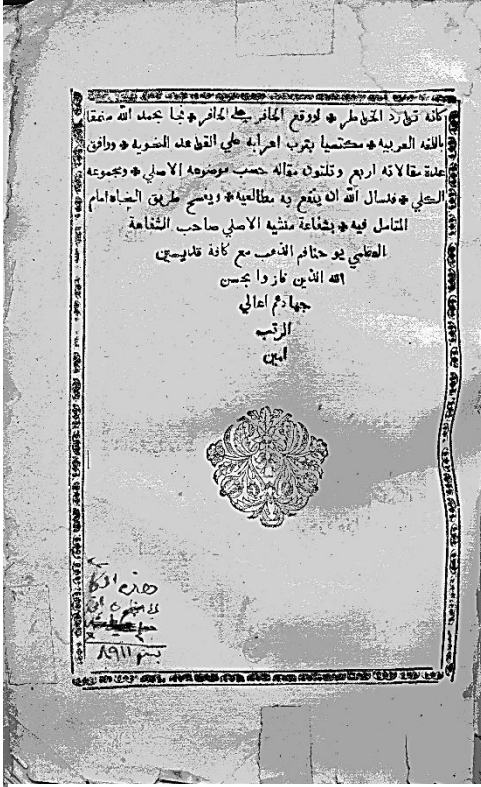 كانه توارد الخواطر ❊ لووقع الحافر على الحافر ❊ نجا بحمد الله متقنا
باللغه العربية ❊ مكتسيا بترب اعرابه علي القواعد النحوية ❊ ووافق
عدة مقالاته اربع وثلثون مقاله حسب موضوعه الاصلي ❊ ومجموعه
الكلي ❊ فنسال الله ان ينفع به مطالعيه ❊ ويفسح طريق الحياه امام
المتامل فيه ❊ بشفاعة منشيه الاصلي صاحب الشفاعة
العظمي يوحنافم الذهب مع كافة قديسين
الله الذين فازوا بحسن
جهادهم اعالي
الرتب
امين
هذه